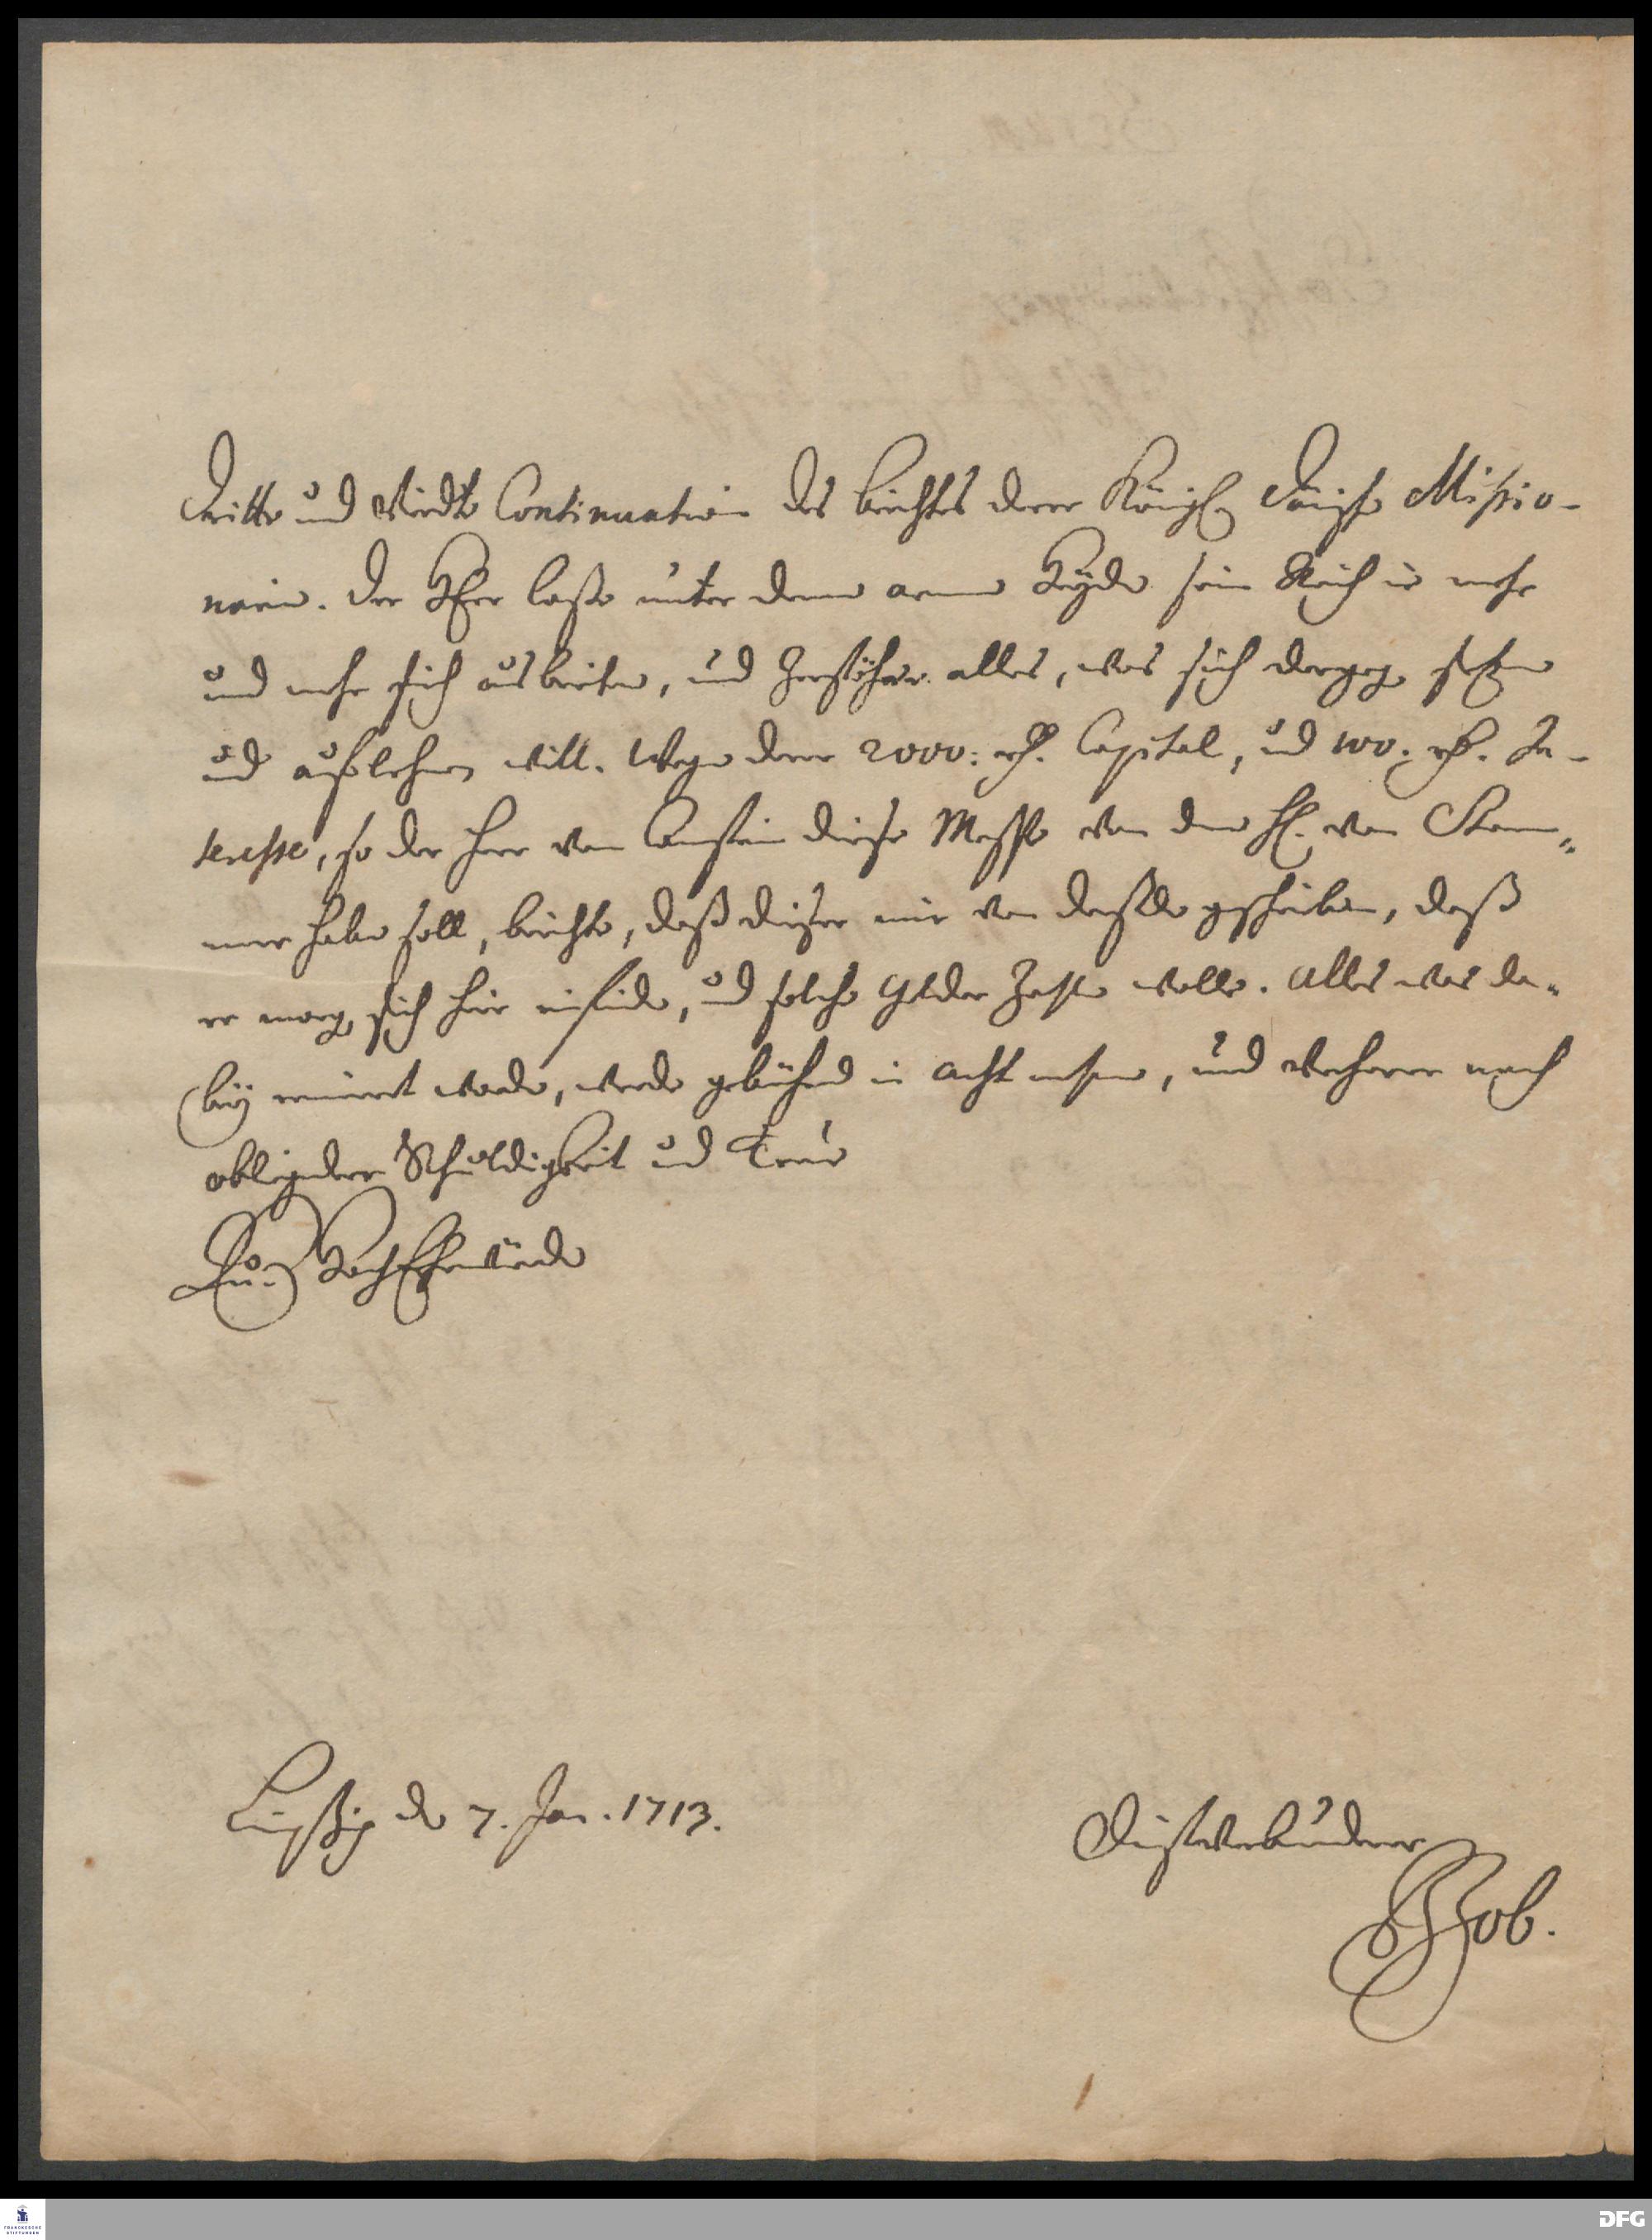 dritte und Vierdte Continuation des berichtes derer Königl. Dänischen Missio-
narien. Der HErr laße unter denen armen Heyden sein Reich ie mehr
und mehr sich ausbreiten, und zerstöhre alles, was sich dargegen setzen
und auflehnen will. Wegen derer 2000: rh. Capital, und 100: rh. In-
teresse, so der Herr von Canstein diese Messe von dem H. von Stam-
mer haben soll, berichte, daß dieser mir von deßen geschrieben, daß
er morgen sich hier einfinden, und solche Gelder zahlen wolle. Alles was da-
bey erinnert worden, werde gebührend in acht nehmen, und verharre nach
obliegender Schuldigkeit und Treue
Eu. HochEhrwürden
Leipzig den 7. Jan. 1713.
Dienstverbundener
Job.
FRANCKESCHE
STIFTUNGEN
DFG